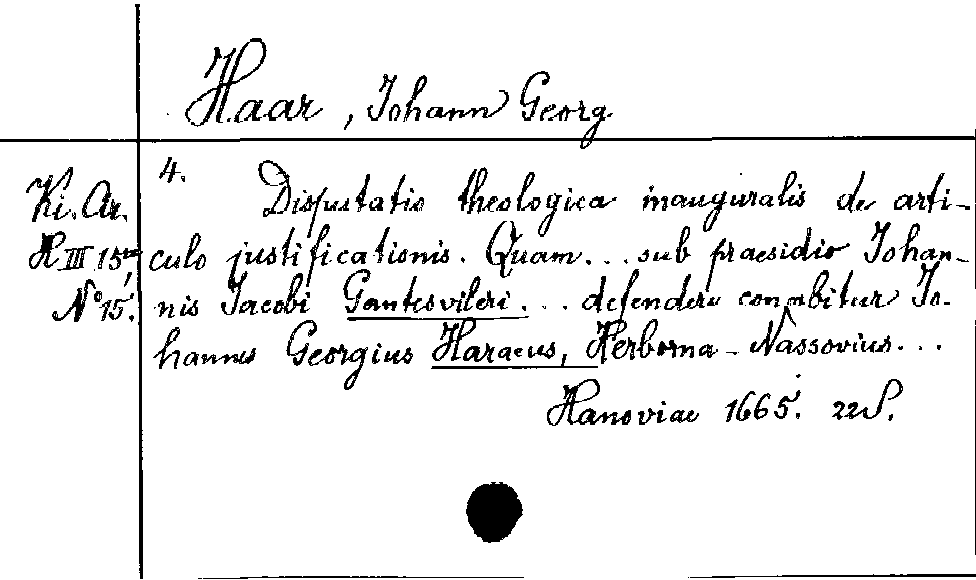 Haar, Johann Georg
4.
Ki. Ar.
H III 15m,
No 15.
Disputatio theologica inauguralis de arti-
culo justificationis. Quam... sub praesidio Johan-
nis Jacobi Gantesvileri... defendere conabitur Jo-
hannes Georgius Haraeus, Herborna-Nassovius...
Hanoviae 1665. 22 S.